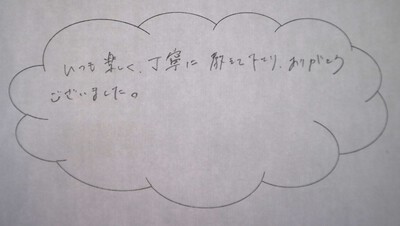 いつも楽しく、丁寧に教えて下さり、ありがとう
ございました。